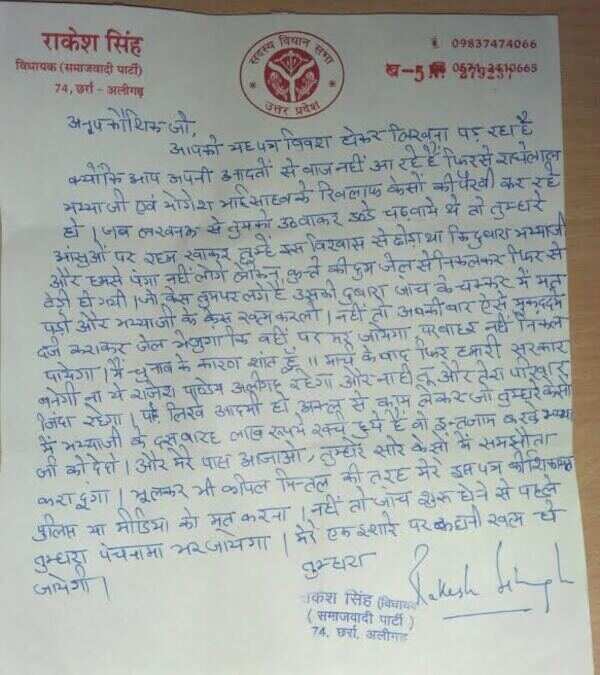 राकेश सिंह
विधायक (समाजवादी पार्टी)
74, छर्रा - अलीगढ़
सदस्य विधान सभा
उत्तर प्रदेश
09837474066
ब-5
अनूप कौशिक जी,
आपको यह पत्र विवश होकर लिखना पड़ रहा है
क्योंकि आप अपनी आदतों से बाज नहीं आ रहे हैं फिर से
भय्याजी एवं योगेश भाईसाहब के खिलाफ केसों की पैरवी कर रहे
हो । जब लखनऊ से तुमको उठवाकर डंडे चढवाये थे तो तुम्हारे
आंसुओं पर रहम खाकर तुम्हें इस विश्वास से छोडा था कि दुबारा भय्याजी
और हमसे पंगा नहीं लोगे लेकिन कुत्ते की दुम जेल से निकलकर फिर से
टेडी हो गयी । जो केस तुमपर लगे हैं उसकी दुबारा जांच के चक्कर में मत
पडो और भय्याजी के केस खत्म करलो । नहीं तो अबकी बार ऐसे मुकद्दमे
दर्ज कराकर जेल भेजूगा कि वहीं पर मर जायेगा परवाहर नहीं निकल
पायेगा । मैं चुनाव के कारण शांत हूँ ।। मार्च के बाद फिर हमारी सरकार
बनेगी ना ये राजेश पाण्डेय अलीगढ़ रहेगा और नाही तू और तेरा परिवार
जिंदा रहेगा । पढ़े लिखे आदमी हो अक्ल से काम लेकर जो तुम्हारे केसों
में भय्याजी के दस बारह लाख रूपये खर्च हुये हैं वो इन्तजाम करके भय्या
जी को देदो । और मेरे पास आजाओ, तुम्हारे सारे केसों में समझौता
करा दूंगा । भूलकर भी कपिल मित्तल की तरह मेरे इस पत्र की शिकायत
पुलिस या मीडिया को मत करना । नहीं तो जांच शुरू होने से पहले
तुम्हारा पंचनामा भर जायेगा । मेरे एक इशारे पर कहानी खत्म हो
जायेगी ।
तुम्हारा
Rakesh Singh
राकेश सिंह (विधायक
( समाजवादी पार्टी )
74, छर्रा, अलीगढ़